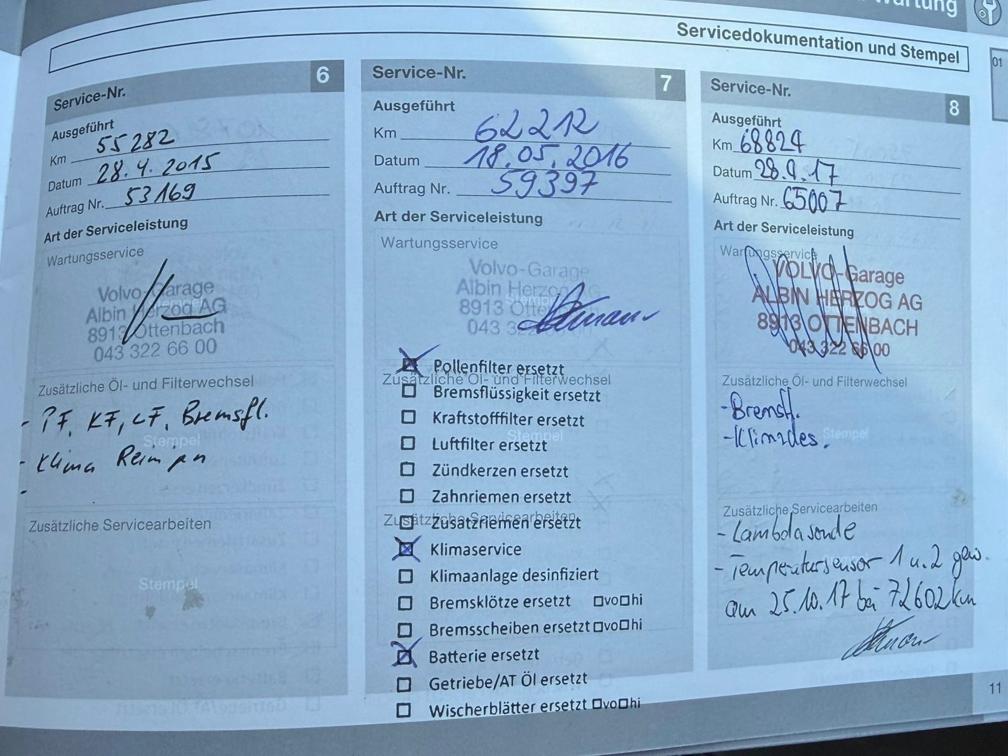 Wartung
Servicedokumentation und Stempel
01
Service-Nr. 6
Ausgeführt
Km 55282
Datum 28.4.2015
Auftrag Nr. 53169
Art der Serviceleistung
Wartungsservice
Volvo-Garage
Albin Herzog AG
8913 Ottenbach
043 322 66 00
Zusätzliche Öl- und Filterwechsel
- PF, KF, LF, Bremsfl.
Stempel
- Klima
-
Zusätzliche Servicearbeiten
Stempel
Service-Nr. 7
Ausgeführt
Km 62212
Datum 18.05.2016
Auftrag Nr. 59397
Art der Serviceleistung
Wartungsservice
Volvo-Garage
Albin Herzog
8913 Otte
043 32
Pollenfilter ersetzt
Zusätzliche Öl- und Filterwechsel
Bremsflüssigkeit ersetzt
Kraftstofffilter ersetzt
Stempel
Luftfilter ersetzt
Zündkerzen ersetzt
Zahnriemen ersetzt
Zusätzliche Servicearbeiten
Zusatzriemen ersetzt
Klimaservice
Klimaanlage desinfiziert
Bremsklötze ersetzt □vo□hi
Bremsscheiben ersetzt □vo□hi
Batterie ersetzt
Getriebe/AT Öl ersetzt
Wischerblätter ersetzt □vo□hi
Service-Nr. 8
Ausgeführt
Km 68824
Datum 28.9.17
Auftrag Nr. 65007
Art der Serviceleistung
Wartungsservice
VOLVO-Garage
ALBIN HERZOG AG
8913 OTTENBACH
043 322 66 00
Zusätzliche Öl- und Filterwechsel
- Bremsfl.
- Klimades.
Stempel
Zusätzliche Servicearbeiten
- Lambdasonde
- Temperatursensor 1 u. 2 gew.
am 25.10.17 bei 72602 km
11